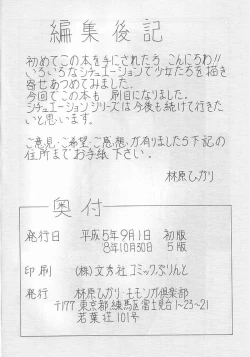 編集後記
初めてこの本を手にされたち こんにちわ!!
いろいろなシチュエーションで少女たちを描き
寄せあつめてみました.
今回でこの本も 刷目になりました.
シチュエーションシリーズは今後も続けて行きた
いと思います.
ご意見・ご希望・ご感想、が有りましたら下記の
住所までお手紙下さい.
林原ひかり
奥付
発行日 平成5年9月1日 初版
8年10月30日 5版
印刷 (株)文秀社コミックぷりんと
発行 林原ひかり・モモンガ倶楽部
〒177 東京都練馬区富士見台1-23-21
若葉荘101号